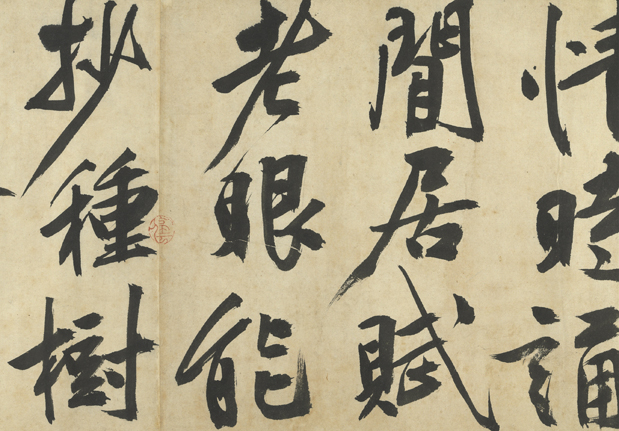 情時誦
閒居賦
老眼能
抄種樹